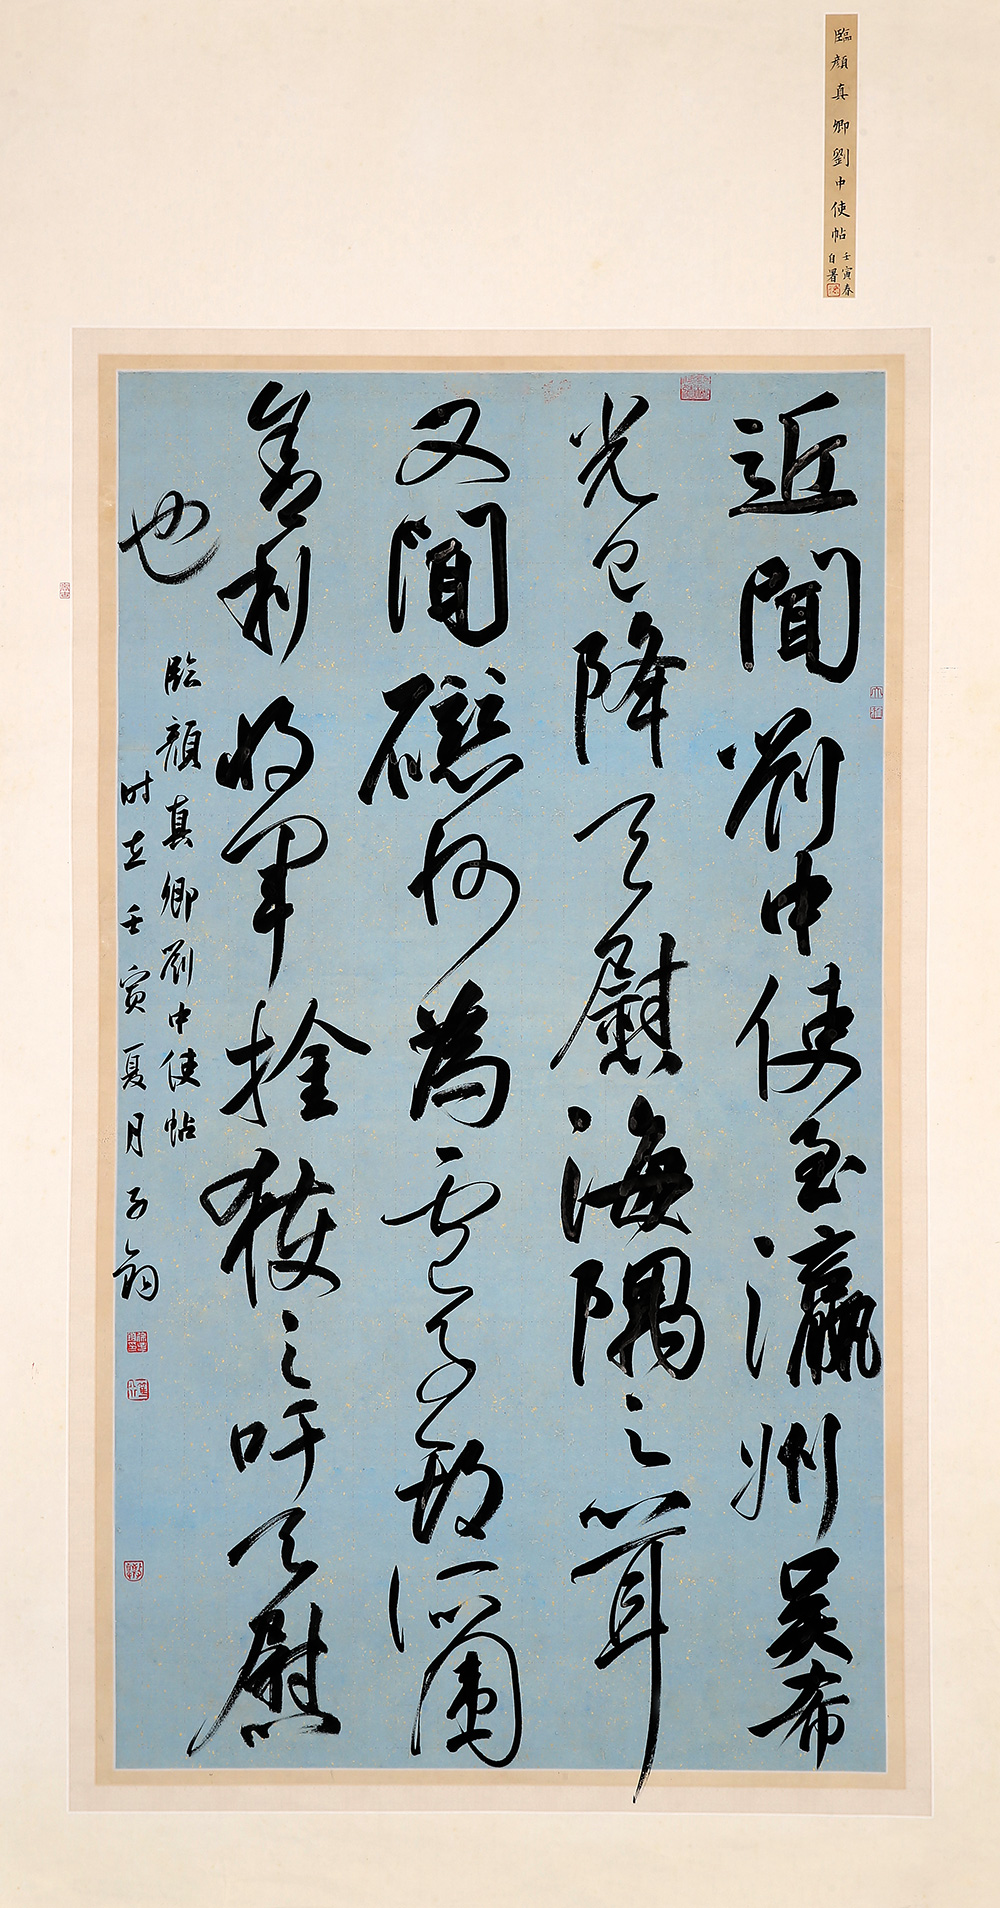 臨顏真卿劉中使帖
壬寅春
自署
近聞劉中使至瀛州吳希
光已降足慰海隅之心耳
又聞磁州為盧子期所圍
舍利將軍擒獲之吁足慰
也
臨顏真卿劉中使帖
时在壬寅夏月子鈞